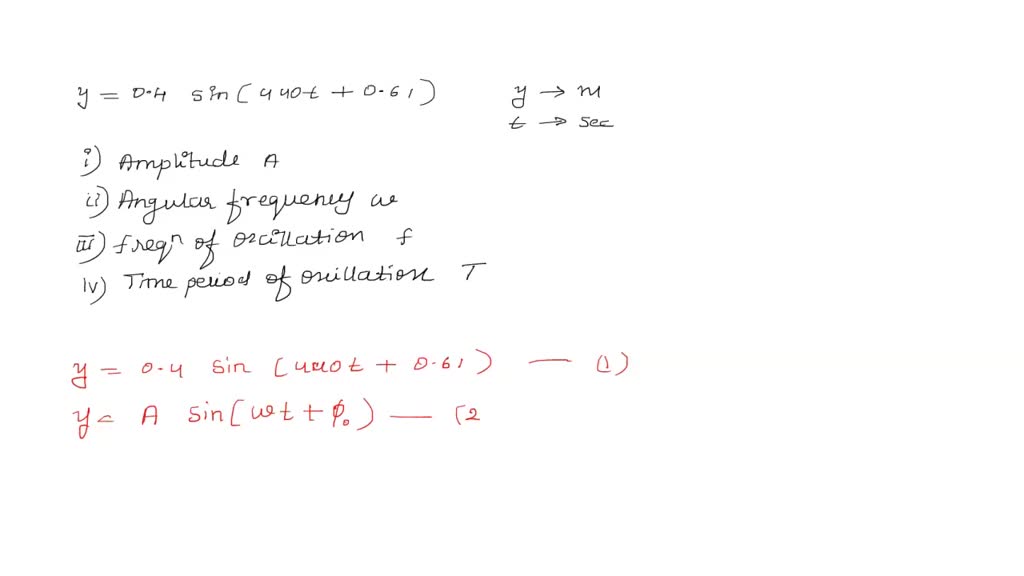 y = 0.4 sin(440t + 0.61) y → m
t → sec
i) Amplitude A
ii) Angular frequency ω
III) freqn of oscillation f
iv) Time period of oscillation T
y = 0.4 sin (440t + 0.61) — (1)
y = A sin(ωt + ϕ₀) — (2